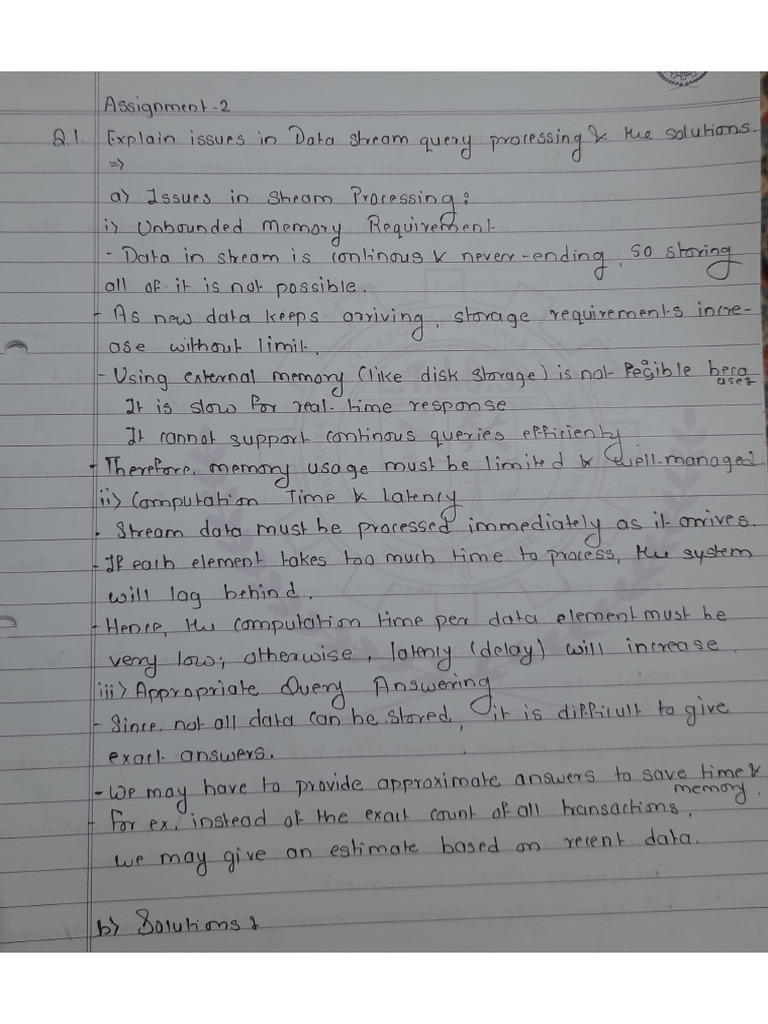 Assignment-2
Q.1. Explain issues in Data stream query processing & the solutions.
⇒
a) Issues in Stream Processing:
i) Unbounded Memory Requirement
- Data in stream is continous & never-ending, so storing
all of it is not possible.
- As new data keeps arriving, storage requirements incre-
ase without limit.
- Using external memory (like disk storage) is not Pegible beca
use:
It is slow for real-time response
It cannot support continous queries efficienty
- Therefore, memory usage must be limited & well-managed
ii) Computation Time & Latency
- Stream data must be processed immediately as it arrives.
- If each element takes too much time to process, the system
will lag behind.
- Hence, the computation time per data element must be
very low; otherwise, latenly (delay) will increase.
iii) Appropriate Query Answering
- Since not all data can be stored, it is difficult to give
exact answers.
- We may have to provide approximate answers to save time &
memory.
- For ex, instead of the exact count of all transactions,
we may give an estimate based on recent data.
b) Solutions: